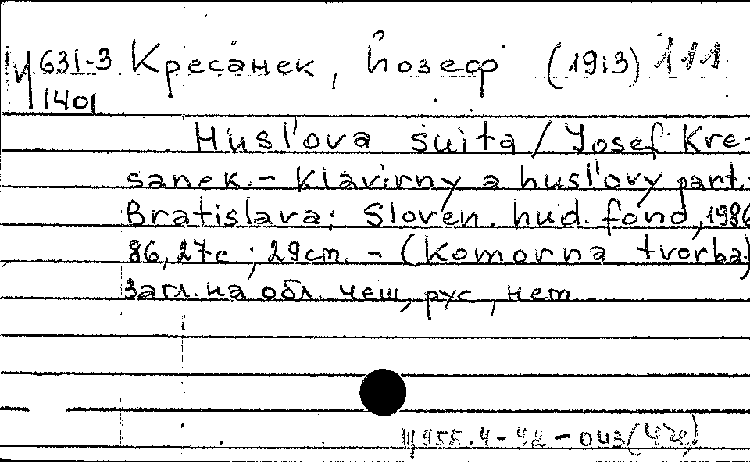 Ц 631-3 Кресанек, Йозеф (1913) 111
1401
Husl'ova suita / Josef Kre-
sanek. - Klavirny a husl'ovy part.
Bratislava: Sloven. hud. fond, 1986
86, 27c ; 29cm. - (Komorna tvorba)
Загл. на обл. чеш, рус, нем